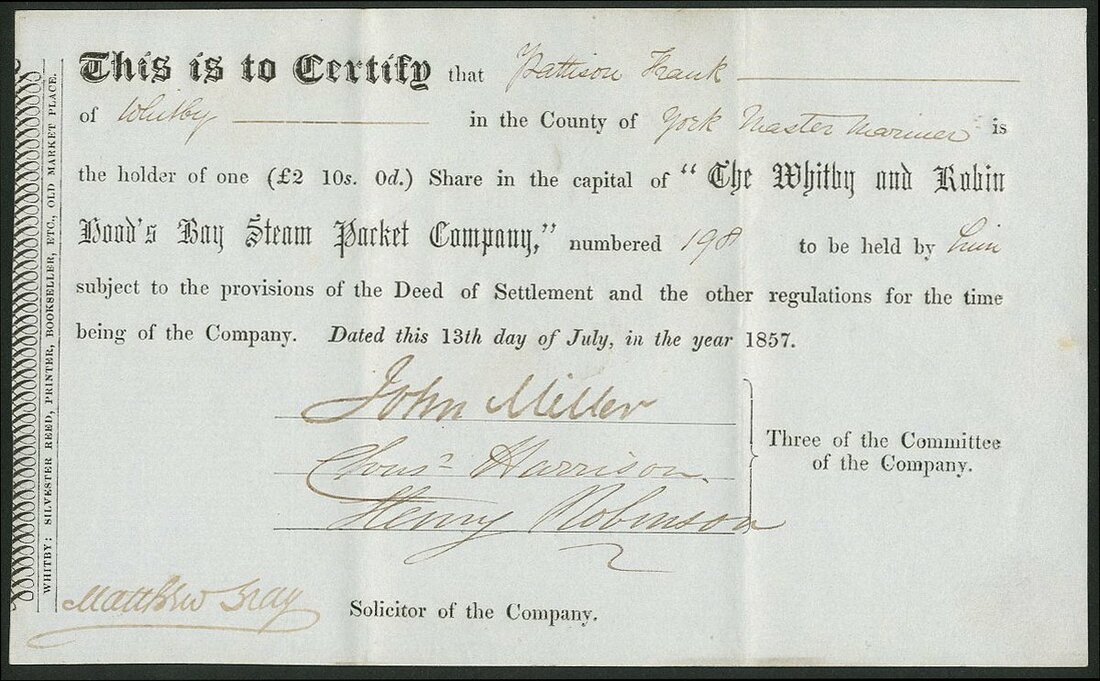 This is to Certify that Pattison Hank
of Whitby in the County of York Master Mariner is
the holder of one (£2 10s. 0d.) Share in the capital of "The Whitby and Robin
Hood's Bay Steam Packet Company," numbered 198 to be held by him
subject to the provisions of the Deed of Settlement and the other regulations for the time
being of the Company. Dated this 13th day of July, in the year 1857.
John Miller
Harrison
Henry Robinson
Three of the Committee
of the Company.
Matthew Gray Solicitor of the Company.
WHITBY: SILVESTER REED, PRINTER, BOOKSELLER, ETC., OLD MARKET PLACE.